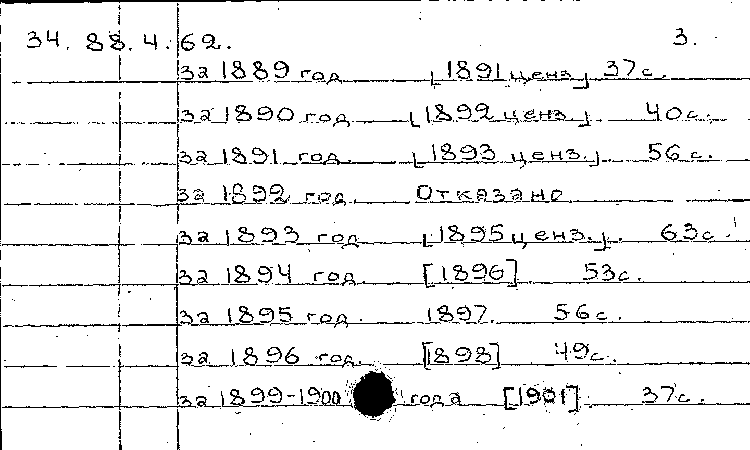 34. 88.4.62. 3.
за 1889 год [1891 ценз.] 37с.
за 1890 год [1892 ценз.] 40с.
за 1891 год. [1893 ценз.] 56с.
за 1892 год. Отказано
за 1893 год [1895 ценз.]. 63с.
за 1894 год. [1896] 53с.
за 1895 год. 1897. 56с.
за 1896 год. [1898] 49с.
за 1899-1900 года [1901]. 37с.